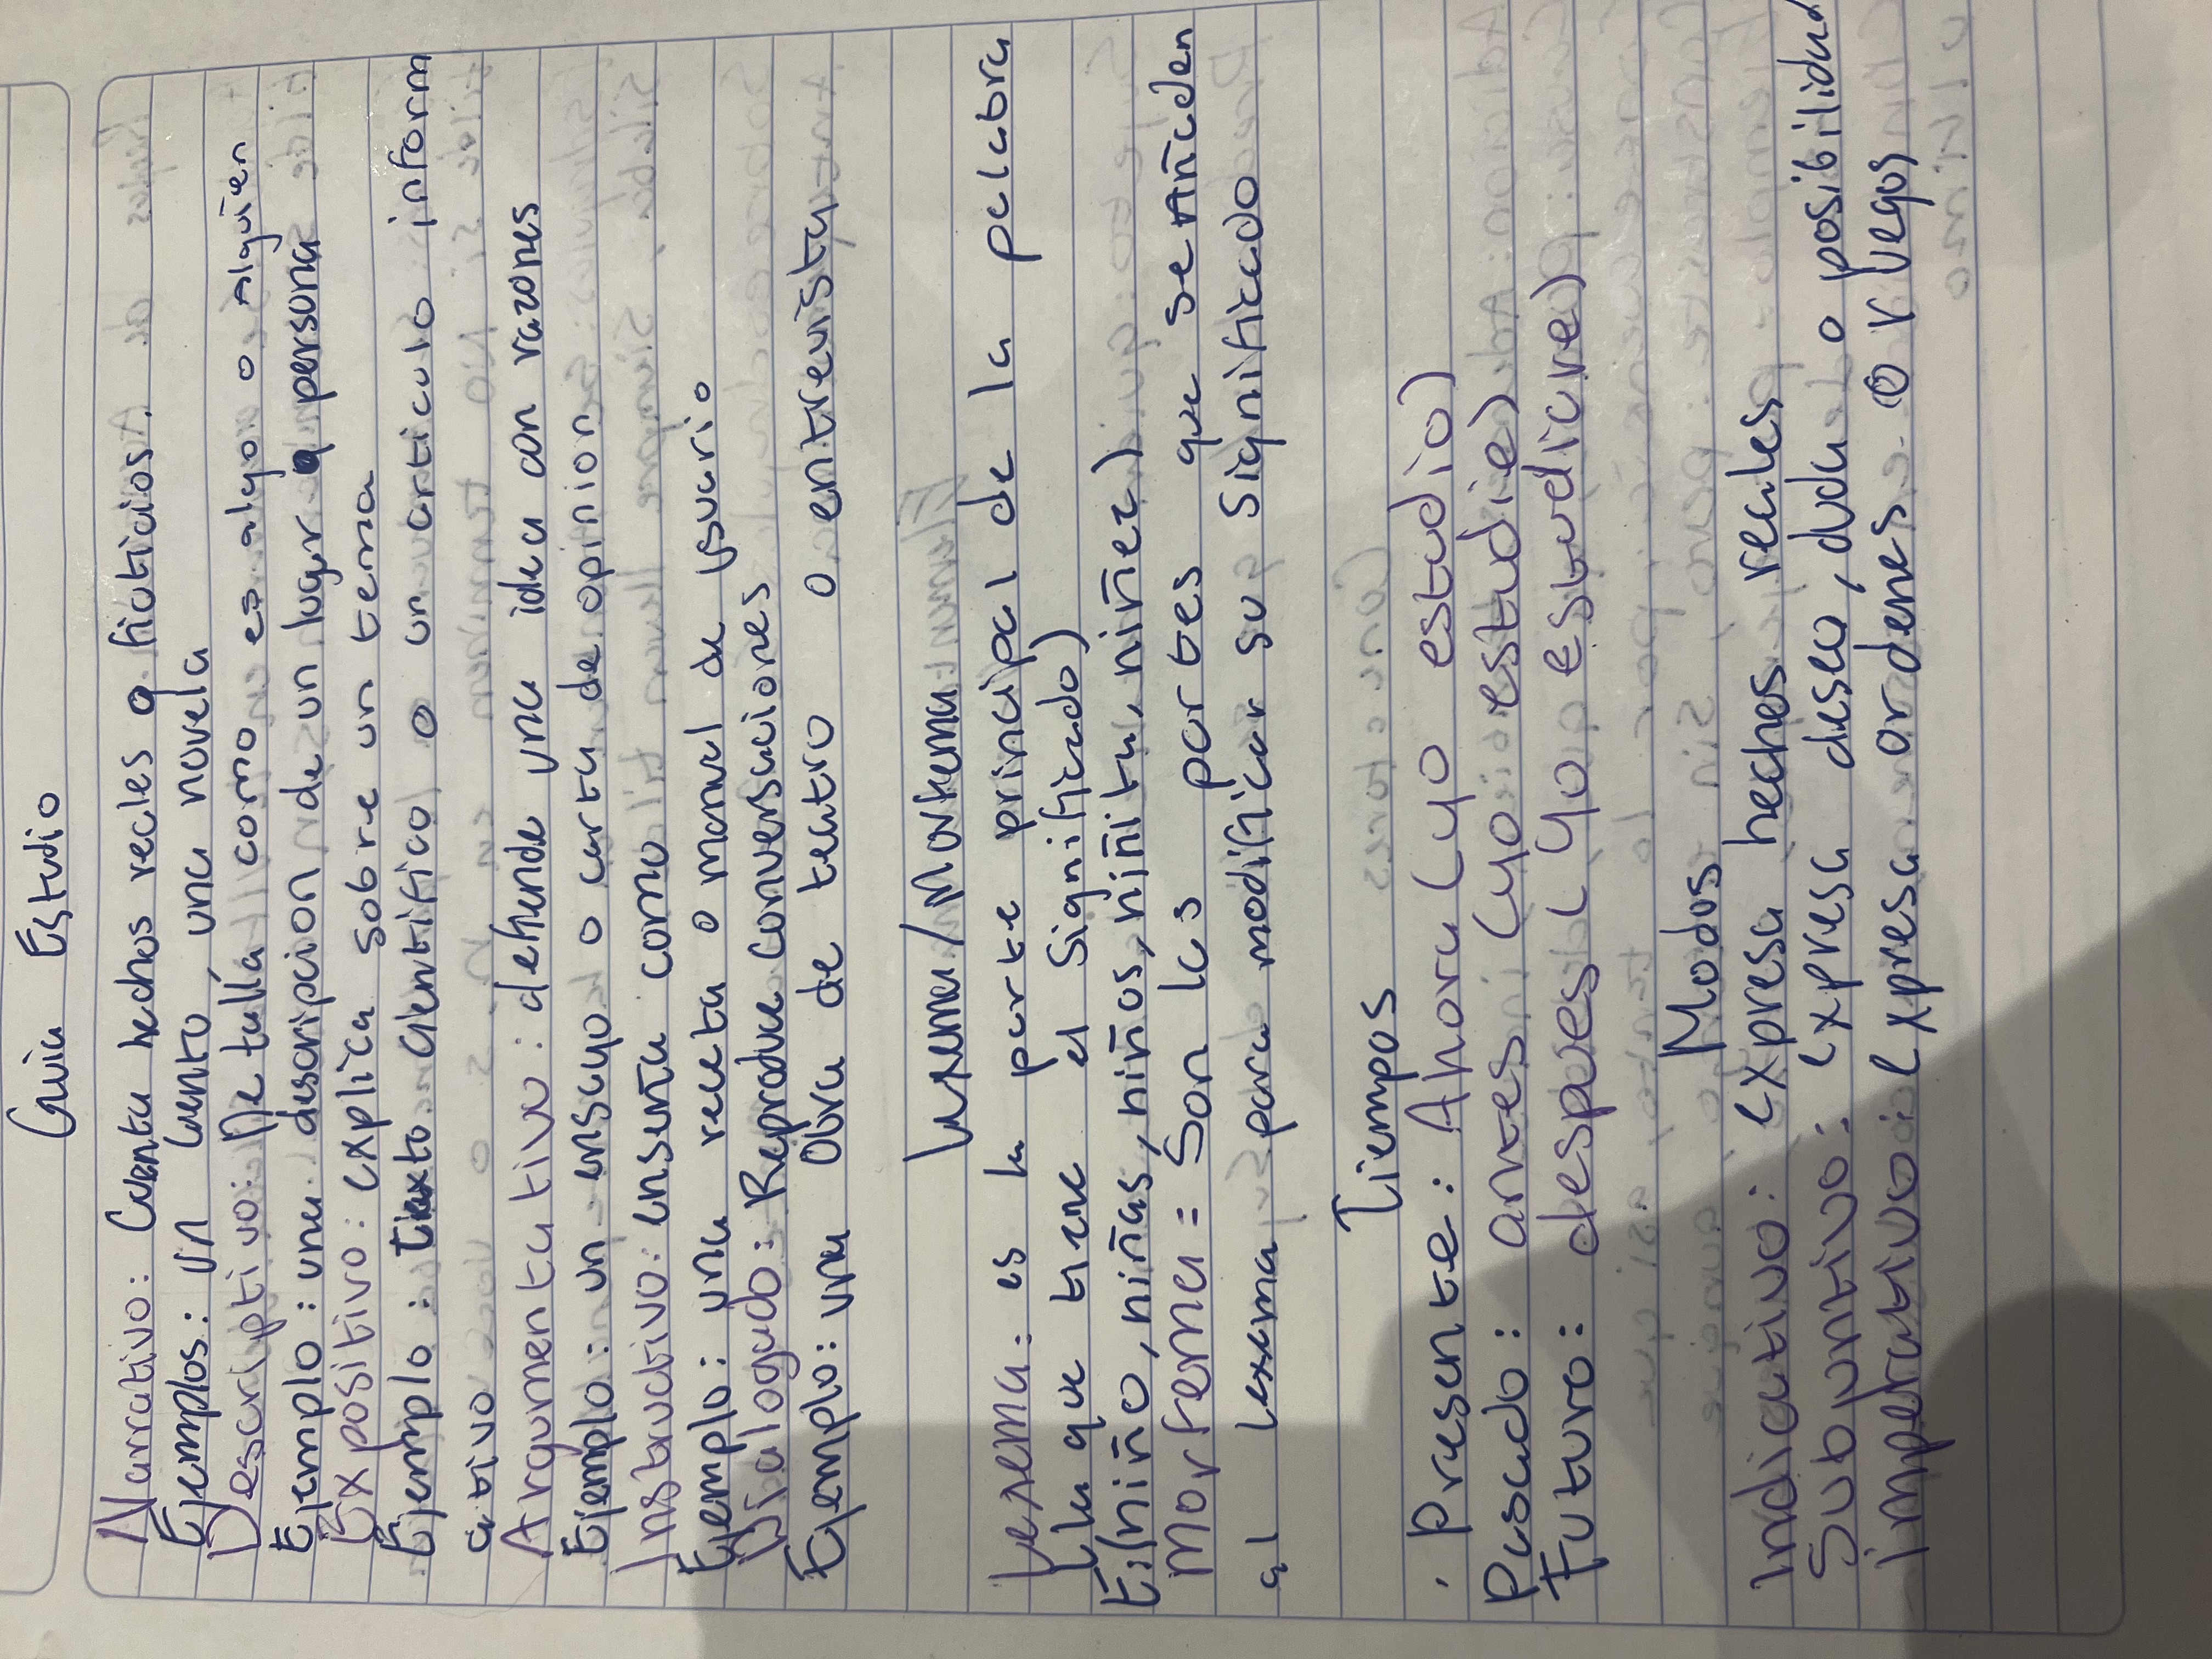 Guia Estudio
Narrativo: Cuenta hechos reales o ficticios.
Ejemplos: un cuento, una novela
Descriptivo: Detalla como es algo o alguien
Ejemplo: una descripcion de un lugar o persona
Expositivo: explica sobre un tema
Ejemplo: texto cientifico o un articulo inform
ativo
Argumentativo: defiende una idea con razones
Ejemplo: un ensayo o carta de opinion
Instructivo: enseña como
Ejemplo: una receta o manual de usuario
Dialogado: Reproduce conversaciones
Ejemplo: una Obra de teatro o entrevista
Lexema/Morfema
Lexema: es la parte principal de la palabra
(la que tiene el significado)
E:(niño, niñas, niños, niñita, niñez)
Morfema = Son las partes que se añaden
al lexema para modificar su significado
Tiempos
. Presente: Ahora (yo estudio)
Pasado: antes (yo estudie)
Futuro: despues (yo estudiare)
Modos
Indicativo: expresa hechos reales
Subjuntivo: expresa deseo, duda o posibilidad
imperativo: expresa ordenes o ruegos